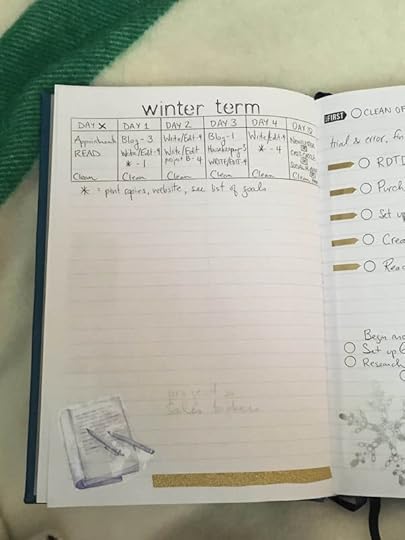 winter term
DAY X DAY 1 DAY 2 DAY 3 DAY 4 DAY
Appointments Blog - 3 Write/Edit-4 Blog - 1 Write/Edit-4
READ Write/Edit-4 Write/Edit Housekeeping-3 * - 4
* - 1 project B-4 Write/Edit-4
Clean Clean Clean Clean Clean Clean
* = print copies, website, see list of goals
FIRST CLEAN OF
trial & error, fin
RDTD
Purch
Set up
Crea
Rea
Begin
Set up
Research